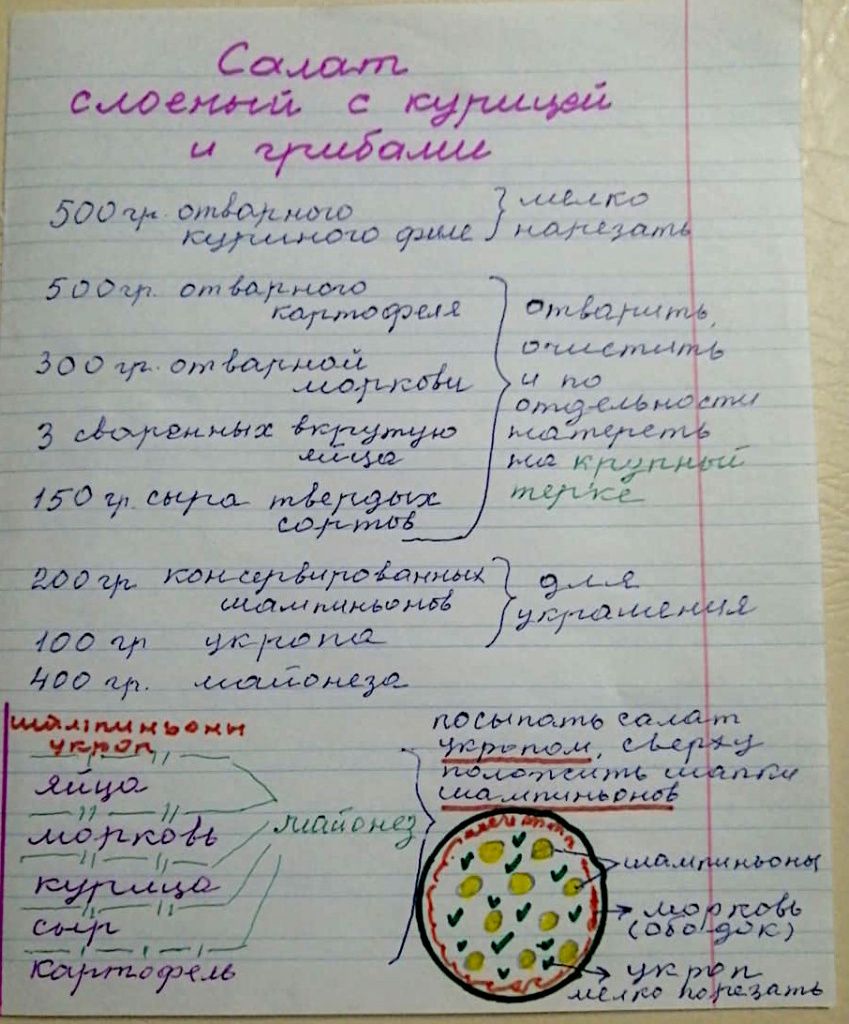 Салат
слоеный с курицей
и грибами
500 гр. отварного
куриного филе
мелко
нарезать
500 гр. отварного
картофеля
300 гр. отварной
моркови
3 сваренных вкрутую
яйца
150 гр. сыра твердых
сортов
отварить,
очистить
и по
отдельности
натереть
на крупный
терке
200 гр. консервированных
шампиньонов
100 гр укропа
для
украшения
400 гр. майонеза
шампиньоны
укроп
яйца
морковь
курица
сыр
картофель
майонез
посыпать салат
укропом, сверху
положить шапки
шампиньонов
шампиньоны
морковь
(ободок)
укроп
мелко порезать